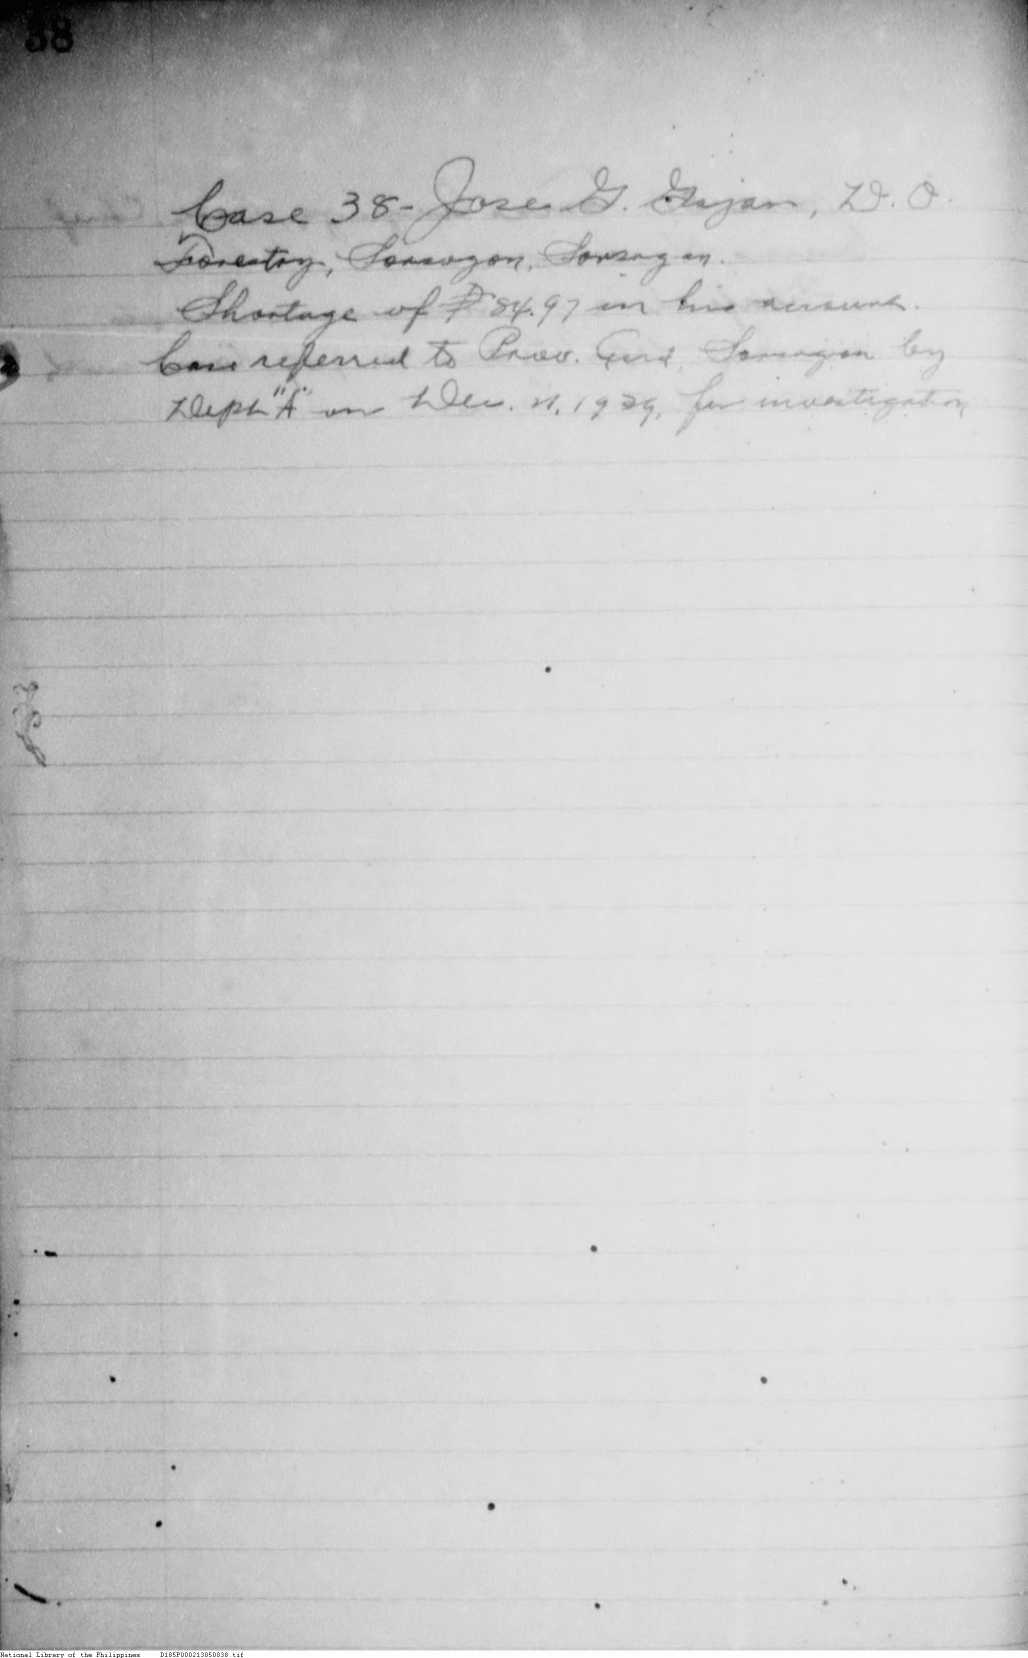 38
Case 38- Jose G. Gajan, D. O.
Forestry, Sorsogon, Sorsogon.
Shortage of ₱84.97 in his account.
Case referred to Prov. Sorsogon by
Dept. "A" on Dec. 1929, for investigation
National Library of the Philippines D185P000213850838.tif